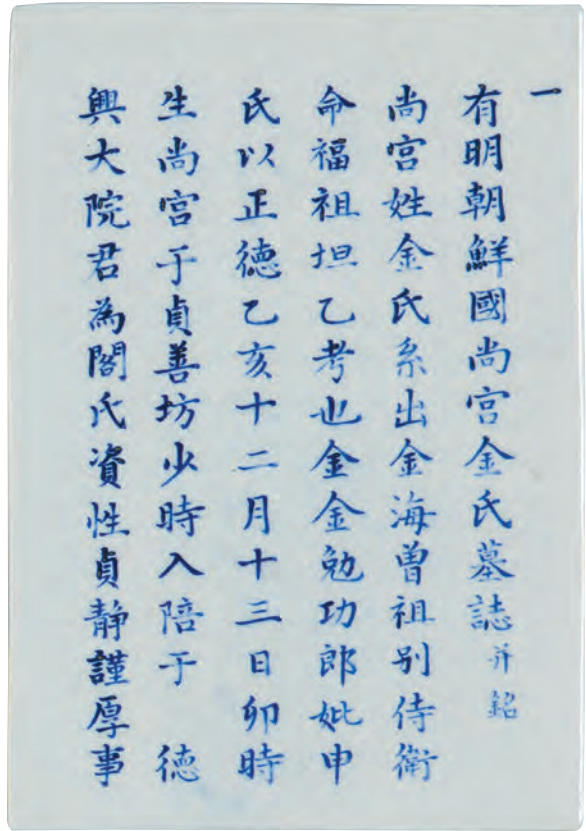 一
有明朝鮮國尚宮金氏墓誌并銘
尚宮姓金氏系出金海曾祖别侍衛
命福祖坦乙考也金金勉功郎妣申
氏以正德乙亥十二月十三日卯時
生尚宮于貞善坊少時入陪于 德
興大院君為閤氏資性貞静謹厚事